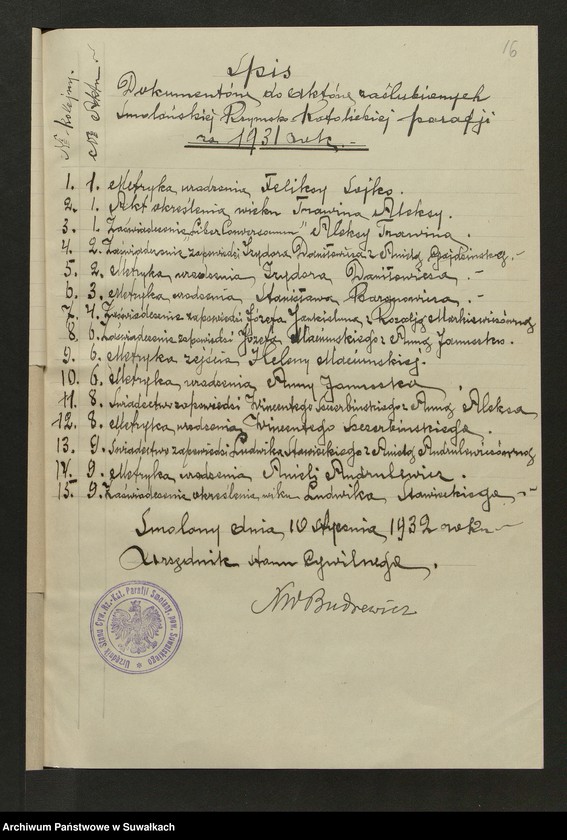 16
№ Kolejny.
№ Aktu
Spis
Dokumentów do aktów zaślubionych
Smolańskiej Rzymsko-Katolickiej parafji
za 1931 rok.
1. 1. Metryka urodzenia Feliksy Sojko.
2. 1. Akt określenia wieku Trawina Aleksy.
3. 1. Zaświadczenie "Liber Conversorum" Aleksy Trawina.
4. 2. Zaświadczenie zapowiedzi Izydora Daniłowicza z Anielą
5. 2. Metryka urodzenia Izydora Daniłowicza.
6. 3. Metryka urodzenia Stanisława Baranowicza.
7. 4. Zaświadczenie zapowiedzi Józefa Jankieluna z Rozalją Markiewiczówną
8. 6. Zaświadczenie zapowiedzi Józefa z Anną
9. 6. Metryka zejścia Heleny
10. 6. Metryka urodzenia Anny
11. 8. Świadectwo zapowiedzi Wincentego Szczerbińskiego z Anną Aleksa
12. 8. Metryka urodzenia Wincentego Szczerbińskiego.
13. 9. Świadectwo zapowiedzi Ludwika Stawieckiego z Anielą Andrulewiczówną
14. 9. Metryka urodzenia Anieli Andrulewicz.
15. 9. Zaświadczenie określenie wieku Ludwika Stawieckiego
Smolany dnia 10 stycznia 1932 roku
Urzędnik Stanu Cywilnego.
Budrewicz
Urzędnik Stanu Cyw. Rz.-Kat. Parafji Smolany, pow. Suwalskiego
Archiwum Państwowe w Suwałkach